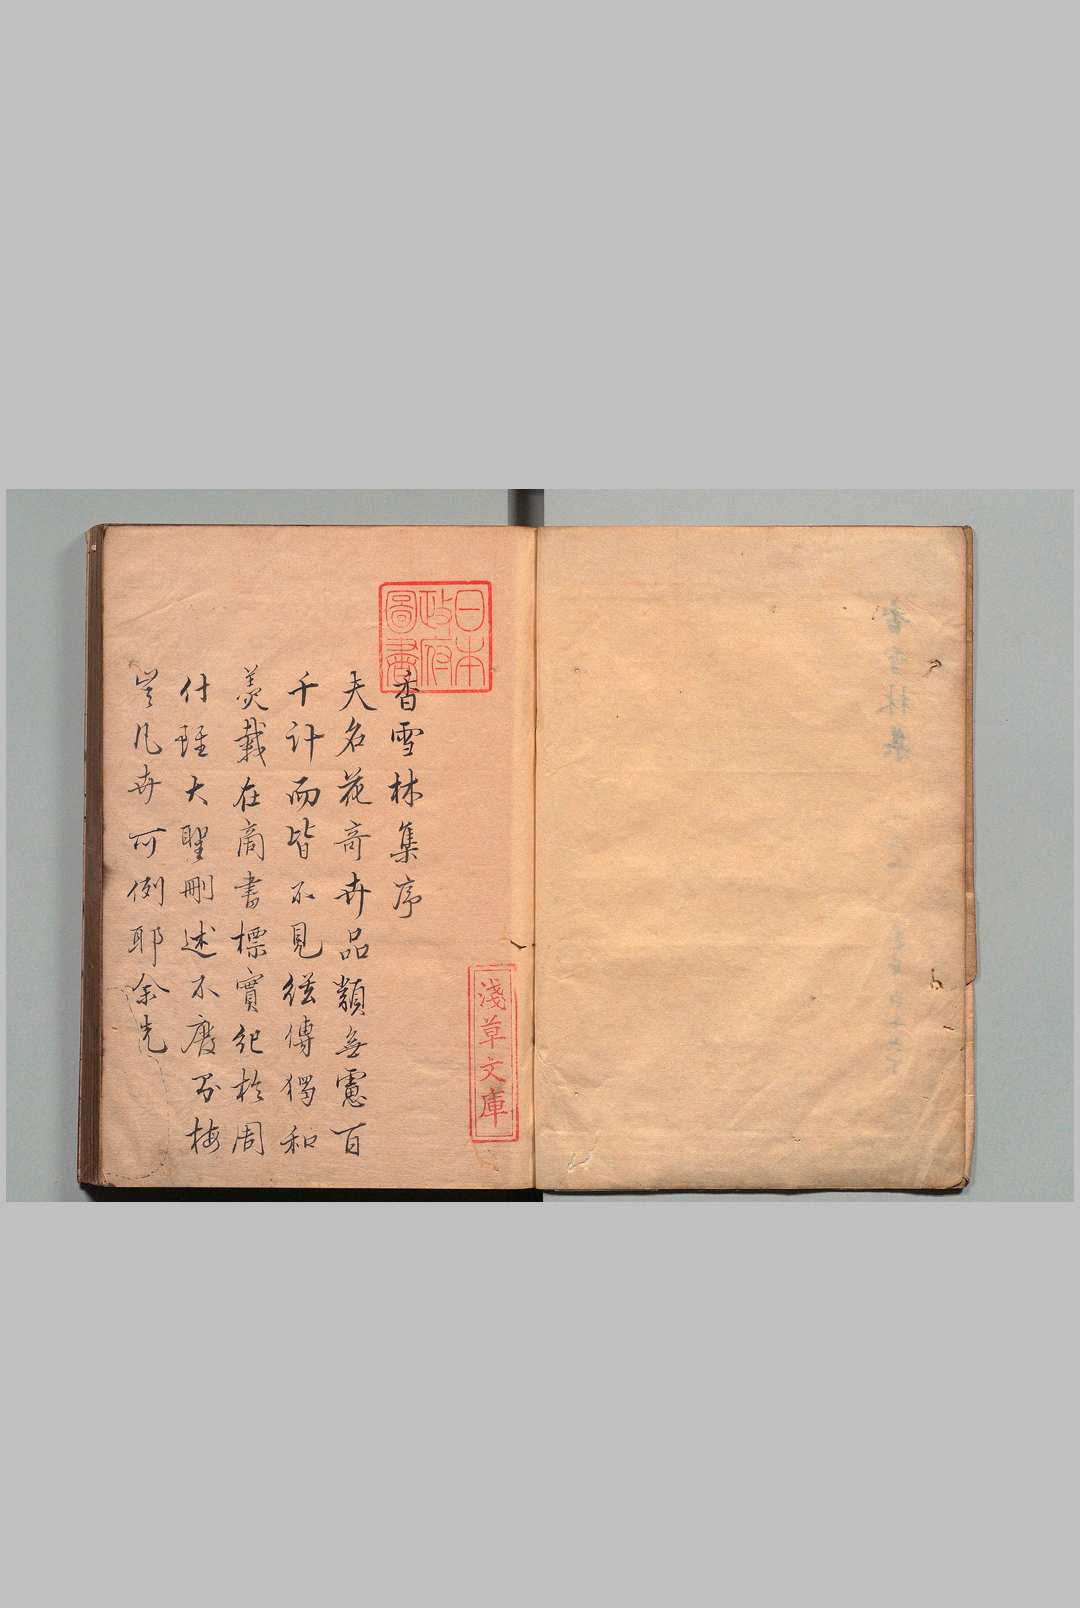 香雪林集
日本
政府
圖書
淺草文庫
香雪林集序
夫名花奇卉品類無慮百
千計而皆不見經傳獨和
羹載在商書標實紀於周
什大聖刪述不廢梅
豈凡卉可例耶余先